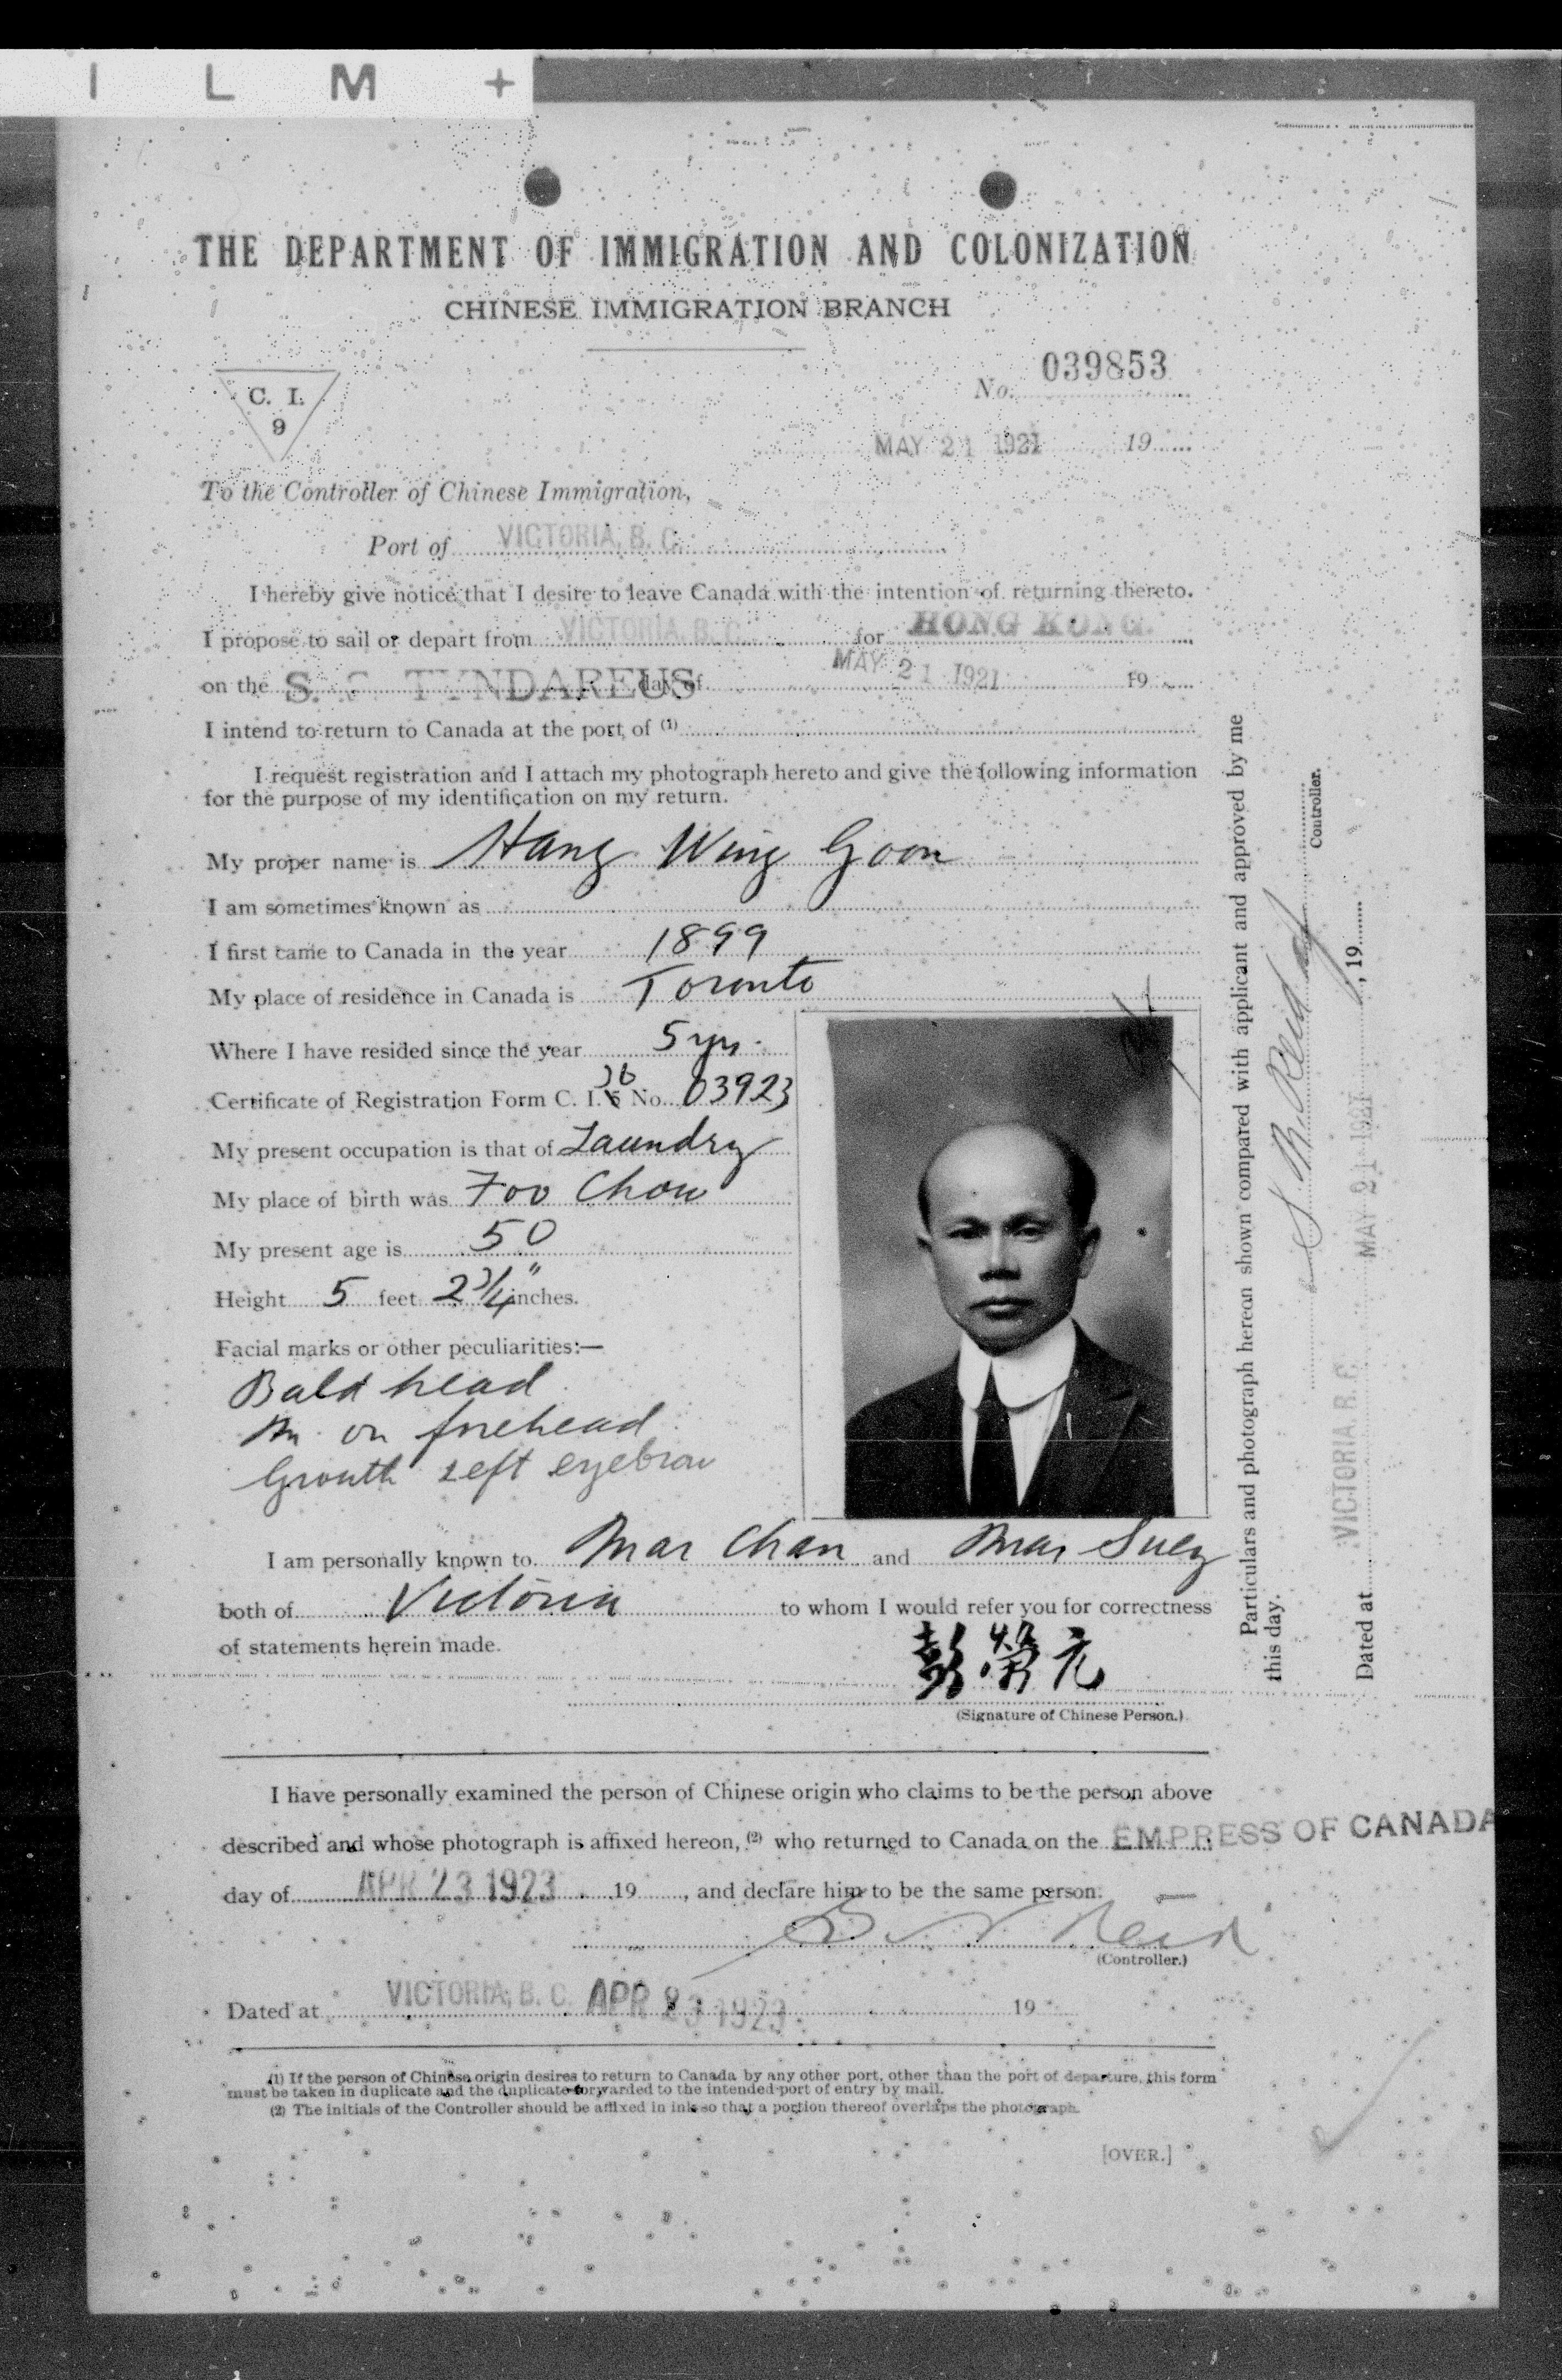 I L M +
THE DEPARTMENT OF IMMIGRATION AND COLONIZATION
CHINESE IMMIGRATION BRANCH
C. I.
9
No. 039853
MAY 21 1921 19
To the Controller of Chinese Immigration,
Port of VICTORIA, B. C.
I hereby give notice that I desire to leave Canada with the intention of returning thereto.
I propose to sail or depart from VICTORIA, B. C. for HONG KONG.
on the S. S. TYNDAREUS day of MAY 21 1921 19
I intend to return to Canada at the port of (1)
I request registration and I attach my photograph hereto and give the following information
for the purpose of my identification on my return.
My proper name is Hang Wing Goon
I am sometimes known as
I first came to Canada in the year 1899
My place of residence in Canada is Toronto
Where I have resided since the year 5 yrs.
Certificate of Registration Form C. I. 5 36 No. 03923
My present occupation is that of Laundry
My place of birth was Foo Chow
My present age is 50
Height 5 feet 2 3/4" inches.
Facial marks or other peculiarities:—
Bald head
on forehead
Growth Left eyebrow
I am personally known to Mar Chan and Mar Suey
both of Victoria to whom I would refer you for correctness
of statements herein made.
彭榮元
(Signature of Chinese Person.)
I have personally examined the person of Chinese origin who claims to be the person above
described and whose photograph is affixed hereon, (2) who returned to Canada on the EMPRESS OF CANADA
day of APR 23 1923 19 , and declare him to be the same person.
Reid
(Controller.)
Dated at VICTORIA, B. C. APR 23 1923 19
(1) If the person of Chinese origin desires to return to Canada by any other port, other than the port of departure, this form
must be taken in duplicate and the duplicate forwarded to the intended port of entry by mail.
(2) The initials of the Controller should be affixed in ink so that a portion thereof overlaps the photograph.
[OVER.]
Particulars and photograph hereon shown compared with applicant and approved by me
this day.
Reid
Controller.
Dated at VICTORIA, B. C. MAY 21 1921 , 19